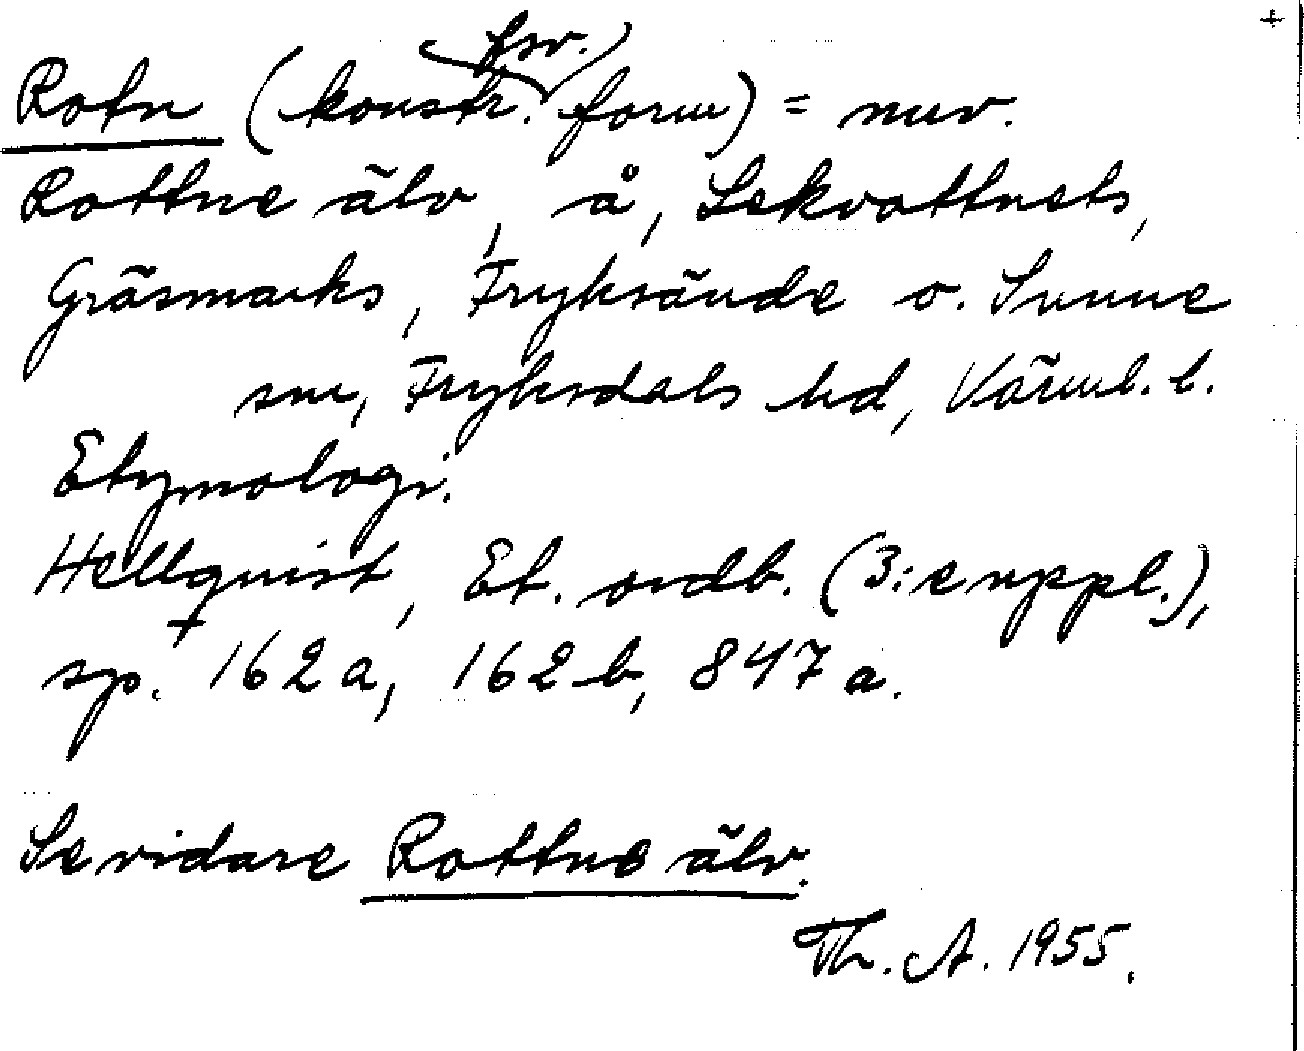 +
Rotn (konstr. fsv. form) = nuv.
Rottne älv, å, Lekvattnets,
Gräsmarks, Fryksände o. Sunne
snr, Fryksdals hd, Värml. l.
Etymologi.
Hellquist, Et. ordb. (3:e uppl.),
sp. 162a, 162b, 847a.
Se vidare Rottne älv.
Th. A. 1955.